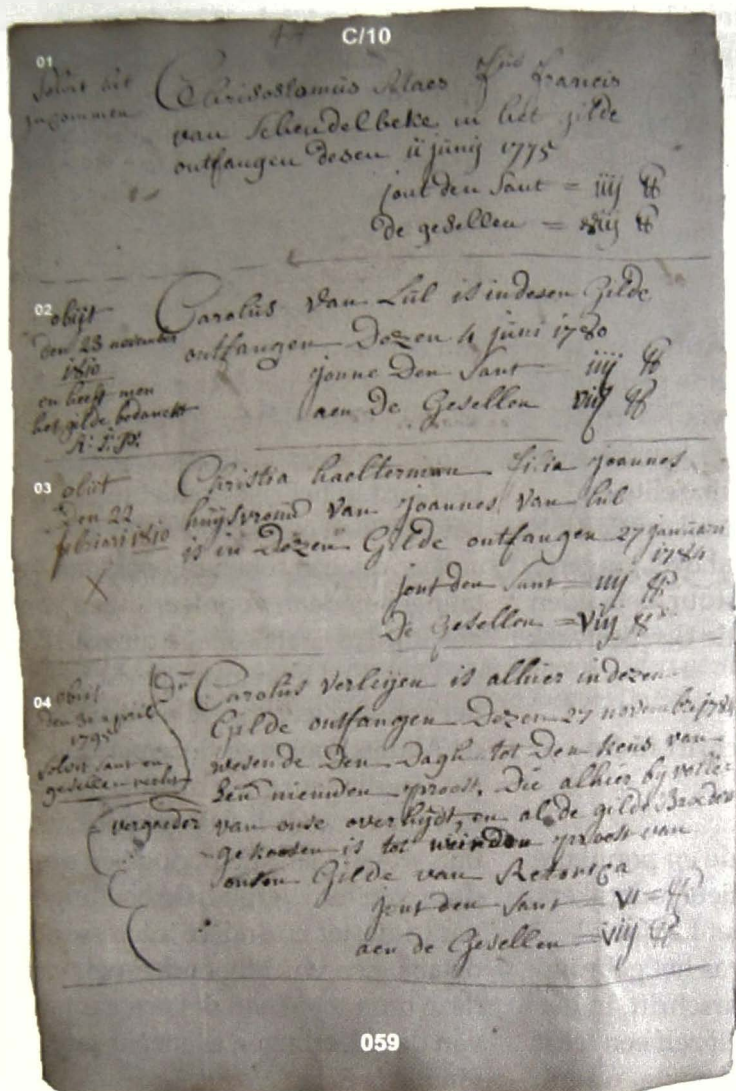 C/10
01
Solvit int
inkommen
Chrisostomus Maes fius francis
van Schendelbeke in het gilde
ontfangen desen ii junij 1775
jont den Sant = iiij ℔
de gesellen = viij ℔
02
obijt
den 23 november
1810
en heeft men
het gilde bedanckt
R: I: P:
Carolus van Lul is in desen Gilde
ontfangen Dezen 4 juni 1780
jonne Den Sant iiij ℔
aen De Gesellen viij ℔
03
obiit
Den 22
februari 1810
X
Christia haelterman filia joannes
huijsvrouw van joannes van lul
is in Dezen Gilde ontfangen 27 januari
1784
jont den Sant = iiij ℔
De Gesellen = viij ℔
04
obiit
den 30 april
1795
Solvit sant en
gesellen recht
Dn Carolus verleijen is alhier in dezen
Gilde ontfangen Dezen 27 november 1784
wesende Den Dagh tot Den keus van
Den nieuwen proost, Die alhier by
vergaeder van onse overhijdt, en al de gilde Broeders
gekoosen is tot proost van
onsen Gilde van Retorica
jont den Sant = vi = ℔
aen de Gesellen = viij ℔
059